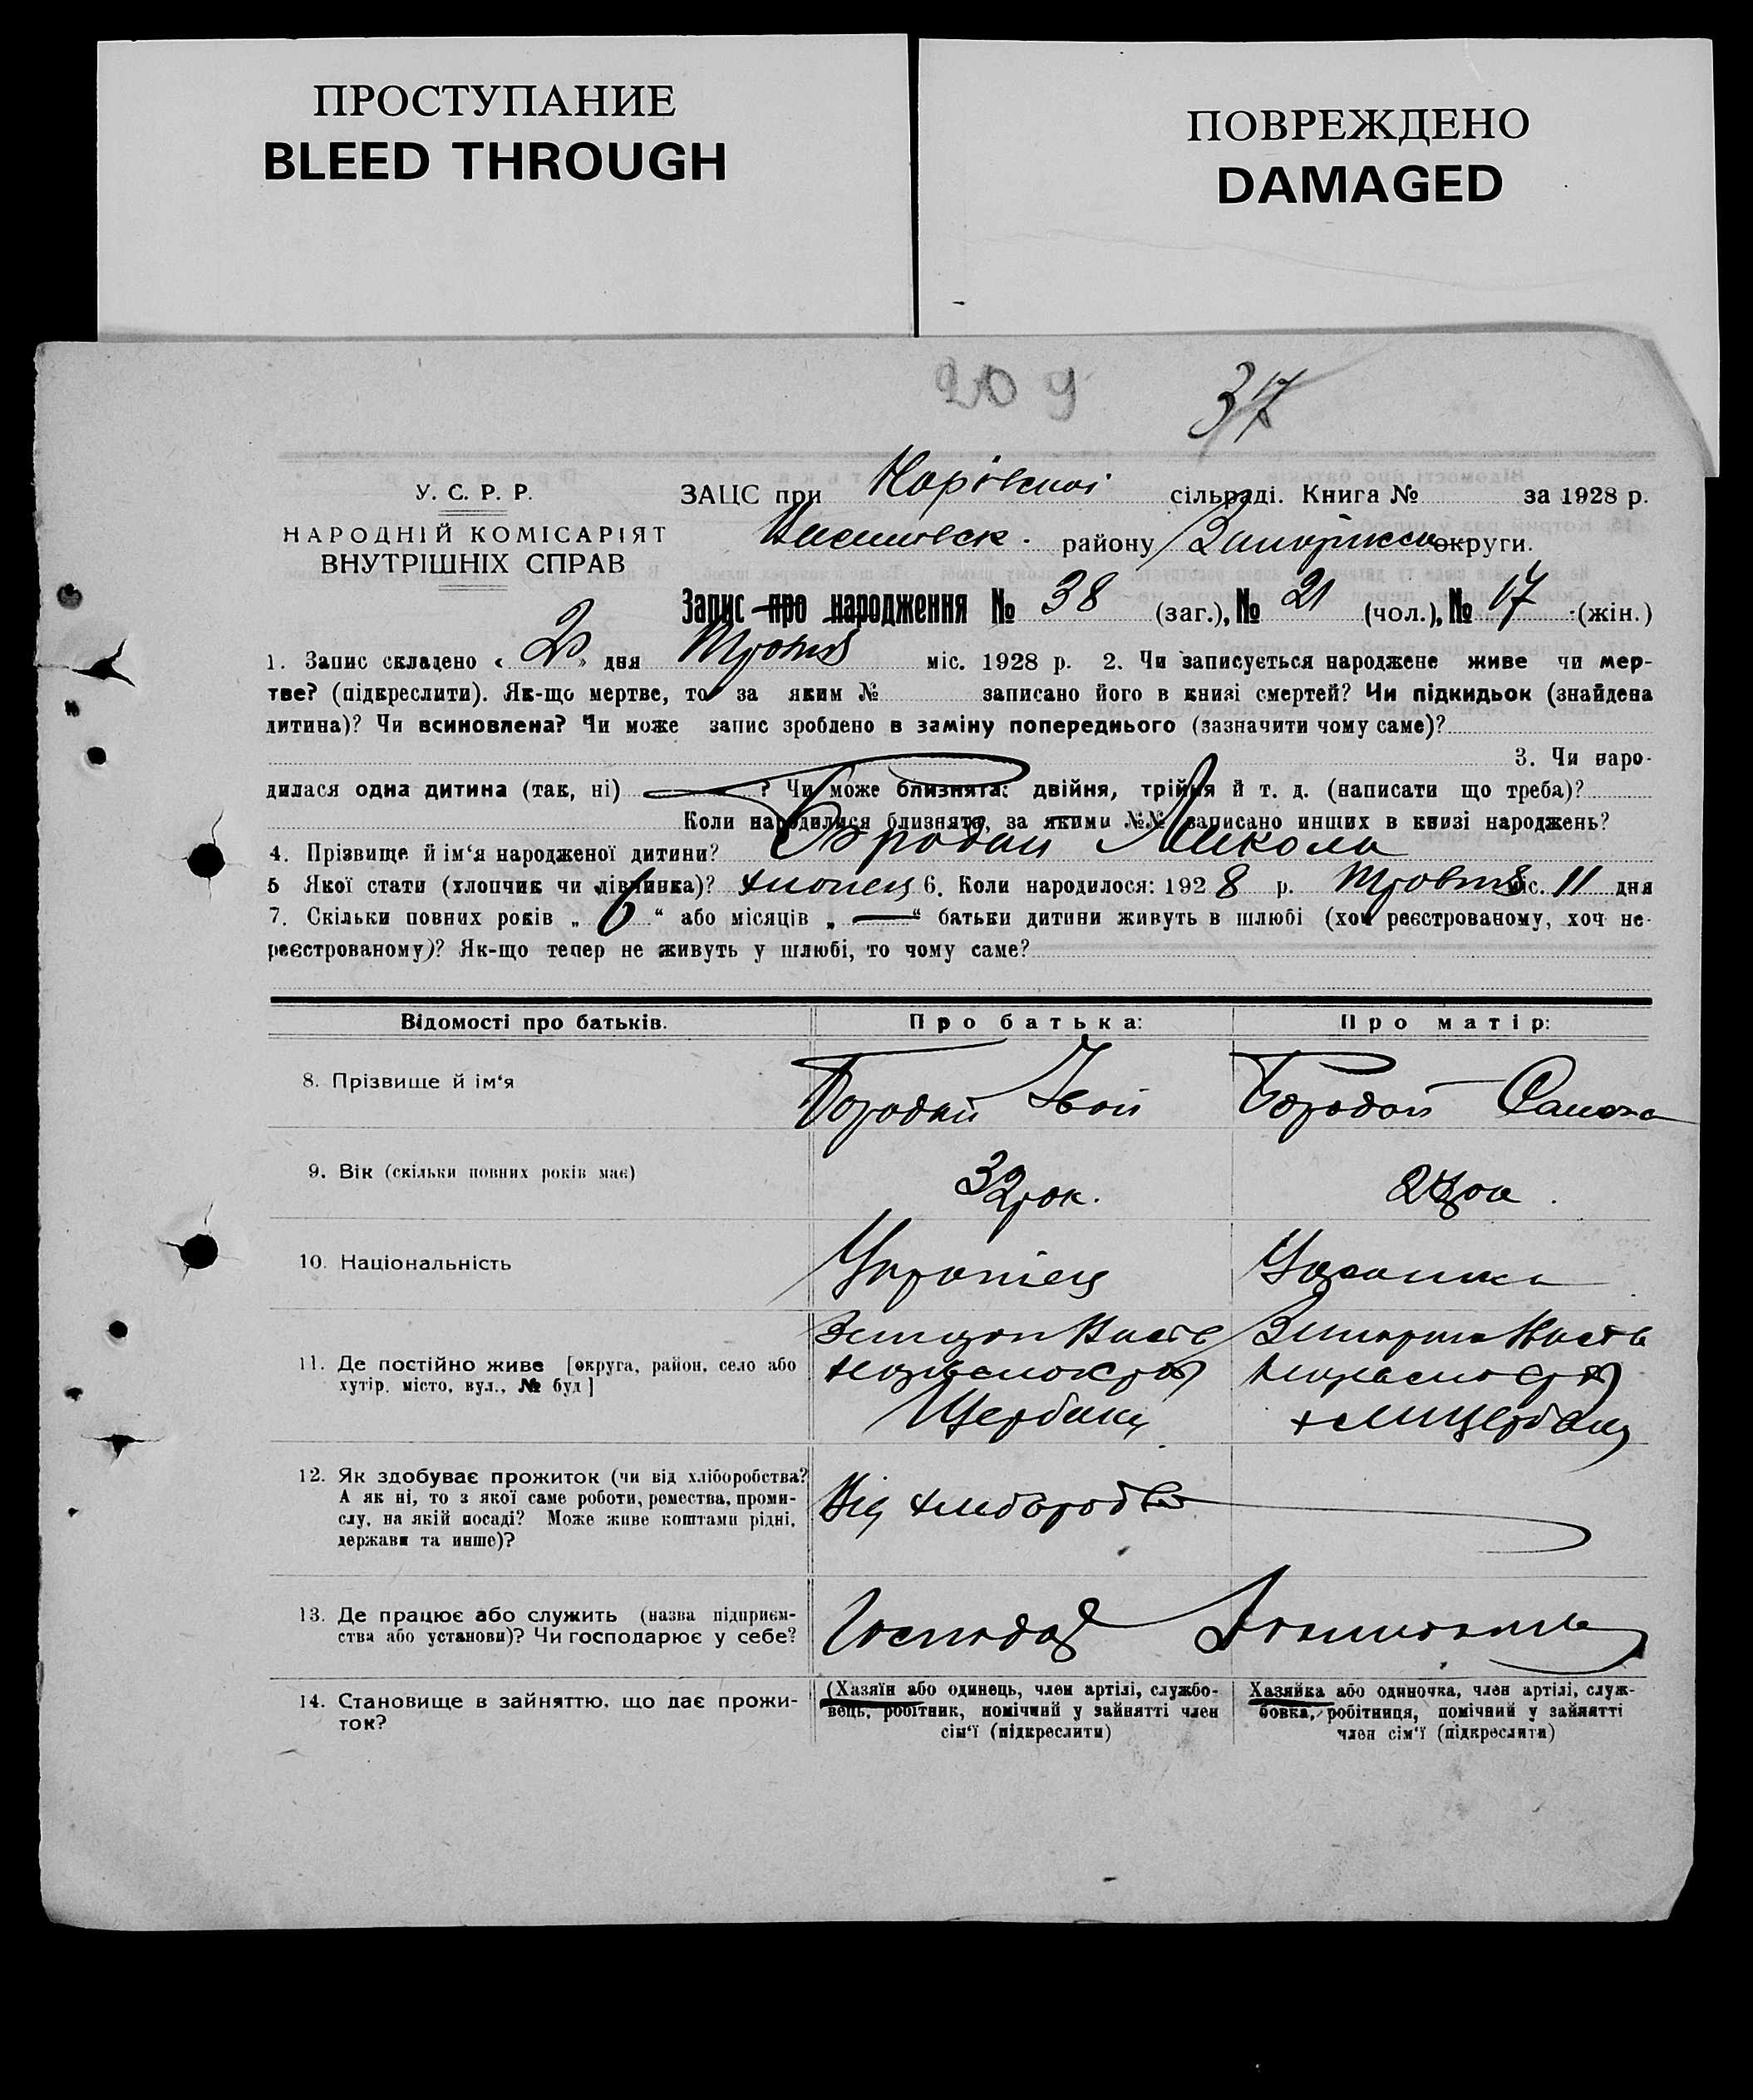 ПРОСТУПАНИЕ
BLEED THROUGH
ПОВРЕЖДЕНО
DAMAGED
209 37
У. С. Р. Р.
НАРОДНІЙ КОМІСАРІЯТ
ВНУТРІШНІХ СПРАВ
ЗАЦС при сільраді. Книга № за 1928 р.
району округи.
Запис про народження № 38 (заг.), № 21 (чол.), № 17 (жін.)
1. Запис складено « » дня міс. 1928 р. 2. Чи записується народжене живе чи мер-
тве? (підкреслити). Як-що мертве, то за яким № записано його в книзі смертей? Чи підкидьок (знайдена
дитина)? Чи всиновлена? Чи може запис зроблено в заміну попереднього (зазначити чому саме)?
3. Чи наро-
дилася одна дитина (так, ні) ? Чи може близнята: двійня, трійня й т. д. (написати що треба)?
Коли народилися близнята, за якими №№ записано инших в книзі народжень?
4. Прізвище й ім‘я народженої дитини? Бородай Микола
5 Якої стати (хлопчик чи дівчинка)? хлопец 6. Коли народилося: 1928 р. міс. 11 дня
7. Скільки повних років „ 6 “ або місяців „ — “ батьки дитини живуть в шлюбі (хоч реєстрованому, хоч не-
реєстрованому)? Як-що тепер не живуть у шлюбі, то чому саме?
Відомості про батьків. Про батька: Про матір:
8. Прізвище й ім‘я Бородай Бородай
9. Вік (скільки повних років має) 32 рок.
10. Національність Українец
11. Де постійно живе [округа, район, село або
хутір, місто, вул., № буд]
Щербаки Щербаки
12. Як здобуває прожиток (чи від хліборобства?
А як ні, то з якої саме роботи, ремества, проми-
слу, на якій посаді? Може живе коштами рідні,
держави та инше)?
Від
13. Де працює або служить (назва підприєм-
ства або установи)? Чи господарює у себе?
14. Становище в зайняттю, що дає прожи-
ток?
(Хазяїн або одинець, член артілі, службо-
вець, робітник, помічний у зайнятті член
сім‘ї (підкреслити)
Хазяйка або одиночка, член артілі, служ-
бовка, робітниця, помічний у зайнятті
член сім‘ї (підкреслити)